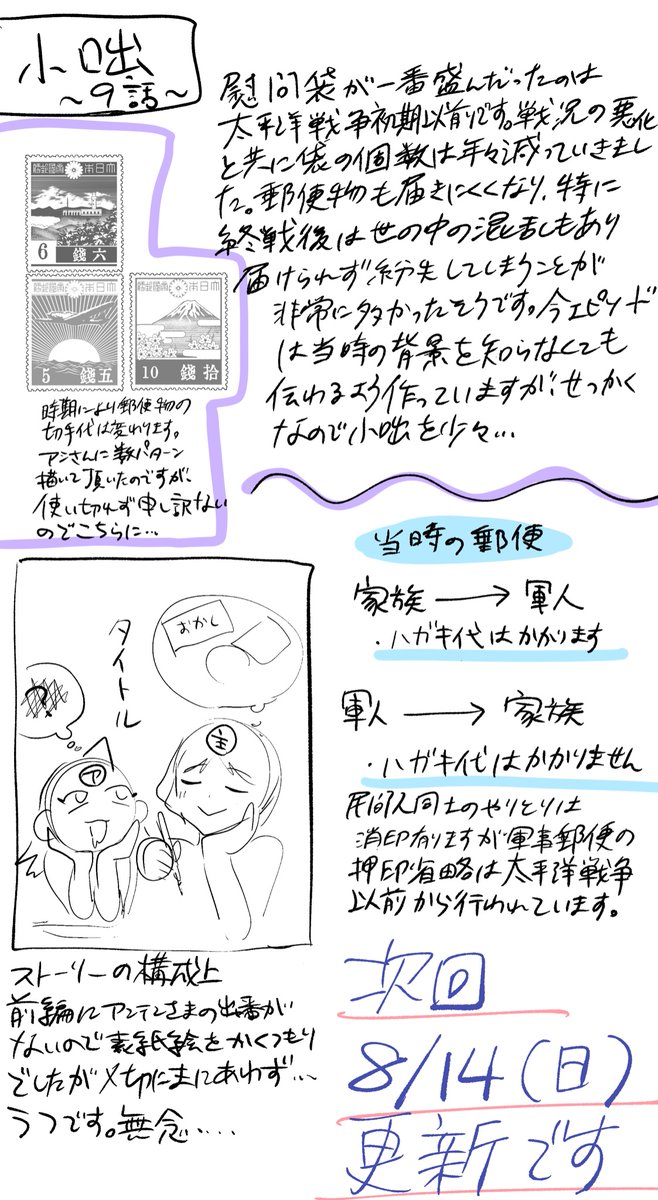 小咄
～9話～
慰問袋が一番盛んだったのは
太平洋戦争初期以前です。戦況の悪化
と共に袋の個数は年々減っていきまし
た。郵便物も届きにくくなり、特に
終戦後は世の中の混乱もあり
届けられず紛失してしまうことが
非常に多かったそうです。今エピソード
は当時の背景を知らなくても
伝わるよう作っていますが、せっかく
なので小咄を少々…
便郵國帝本日大
6 錢六
便郵國帝本日大
5 錢五
便郵國帝本日大
10 錢拾
時期により郵便物の
切手代は変わります。
アシさんに数パターン
描いて頂いたのですが、
使い切れず申し訳ない
のでこちらに…
当時の郵便
家族→軍人
・ハガキ代はかかります
軍人→家族
・ハガキ代はかかりません
民間人同士のやりとりは
消印有りますが軍事郵便の
押印省略は太平洋戦争
以前から行われています。
タイトル
おかし
?
ア
主
ストーリーの構成上
前編にアンテンさまの出番が
ないので表紙絵をかくつもり
でしたが〆切にまにあわず…
ラフです。無念....
次回
8/14(日)
更新です